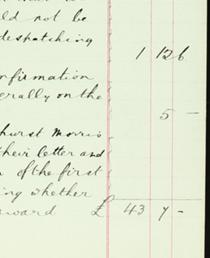 uld not be
despatching
1 12 6
nfirmation
erally on the
5 -
hurst Morris
their letter and
of the first
ing whether
ward £ 43 7 -